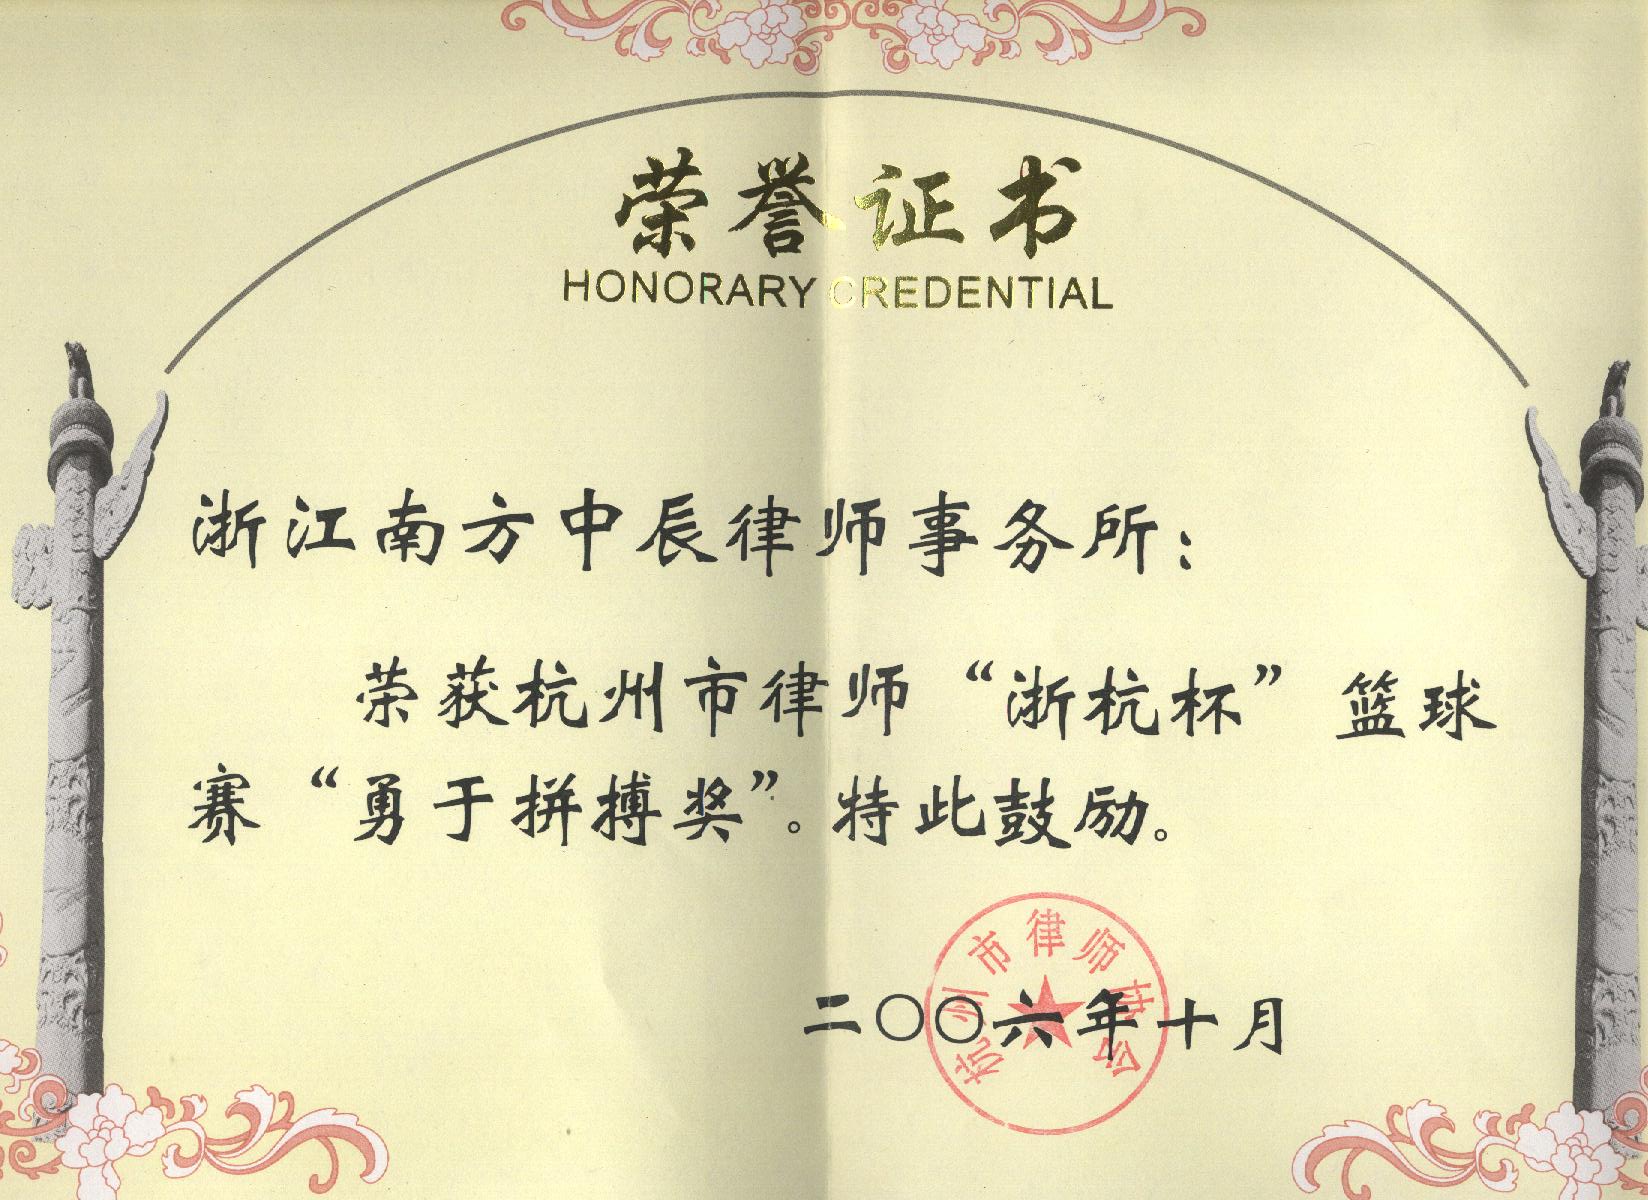 荣誉证书
HONORARY CREDENTIAL
浙江南方中辰律师事务所：
荣获杭州市律师“浙杭杯”篮球
赛“勇于拼搏奖”。特此鼓励。
杭州市律师协会
二〇〇六年十月